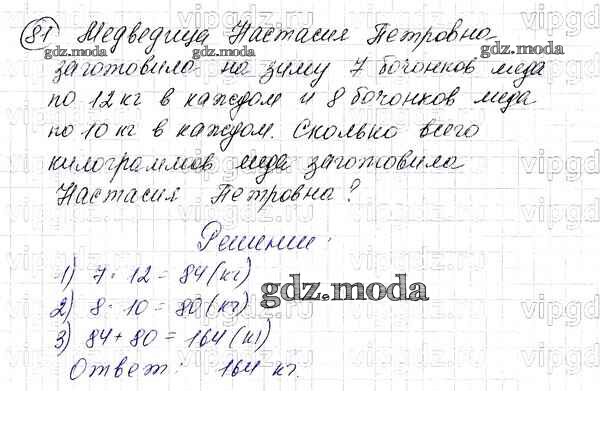 81 Медведица Настасия Петровна
заготовила на зиму 7 бочонков меда
по 12 кг в каждом и 8 бочонков меда
по 10 кг в каждом. Сколько всего
килограммов меда заготовила
Настасия Петровна?
Решение:
1) 7 · 12 = 84 (кг)
2) 8 · 10 = 80 (кг)
3) 84 + 80 = 164 (кг)
Ответ: 164 кг.
gdz.moda
gdz.moda
gdz.moda
gdz.moda
vipgdz.ru